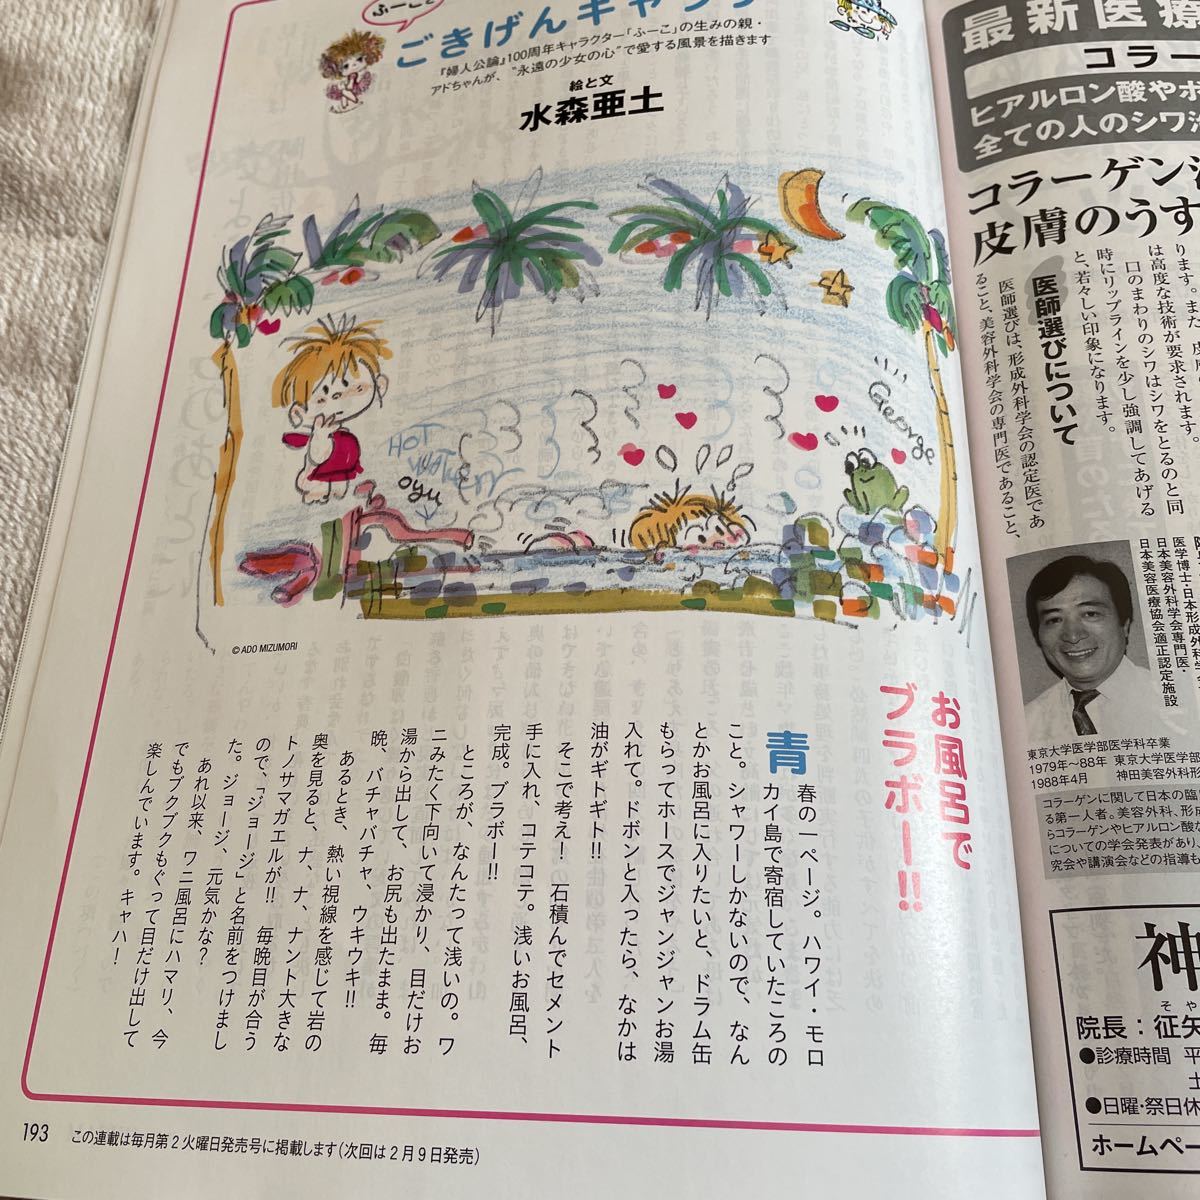 ふーこと
ごきげんキャラ
『婦人公論』100周年キャラクター「ふーこ」の生みの親・
アドちゃんが、“永遠の少女の心”で愛する風景を描きます
絵と文
水森亜土
George
HOT
WATER
oyu
© ADO MIZUMORI
お風呂で
ブラボー!!
青春の一ページ。ハワイ・モロ
カイ島で寄宿していたころの
こと。シャワーしかないので、なん
とかお風呂に入りたいと、ドラム缶
もらってホースでジャンジャンお湯
入れて。ドボンと入ったら、なかは
油がギトギト!!
そこで考え! 石積んでセメント
手に入れ、コテコテ。浅いお風呂、
完成。ブラボー!!
ところが、なんたって浅いの。ワ
ニみたく下向いて浸かり、目だけお
湯から出して、お尻も出たまま。毎
晩、バチャバチャ、ウキウキ!!
あるとき、熱い視線を感じて岩の
奥を見ると、ナ、ナ、ナント大きな
トノサマガエルが!! 毎晩目が合う
ので、「ジョージ」と名前をつけまし
た。ジョージ、元気かな?
あれ以来、ワニ風呂にハマリ、今
でもブクブクもぐって目だけ出して
楽しんでいます。キャハ!
193
この連載は毎月第2火曜日発売号に掲載します(次回は2月9日発売)
最新医療
コラー
ヒアルロン酸やボ
全ての人のシワ
コラーゲン
皮膚のうす
ります。また、
は高度な技術が要求されます。
口のまわりのシワはシワをとるのと同
時にリップラインを少し強調してあげる
と、若々しい印象になります。
医師選びについて
医師選びは、形成外科学会の認定医であ
ること、美容外科学会の専門医であること、
医学博士・日本形成外科学
日本美容外科学会専門医・
日本美容医療協会適正認定施設
東京大学医学部医学科卒業
1979年〜88年 東京大学医学部
1988年4月 神田美容外科形
コラーゲンに関して日本の臨
る第一人者。美容外科、形成
らコラーゲンやヒアルロン酸な
についての学会発表があり、
究会や講演会などの指導も
神
そや
院長:征矢
●診療時間 平
土
●日曜・祭日休
ホームペー